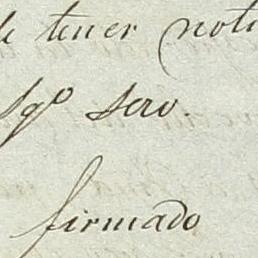 de tener noti
Sgº Serv.
firmado